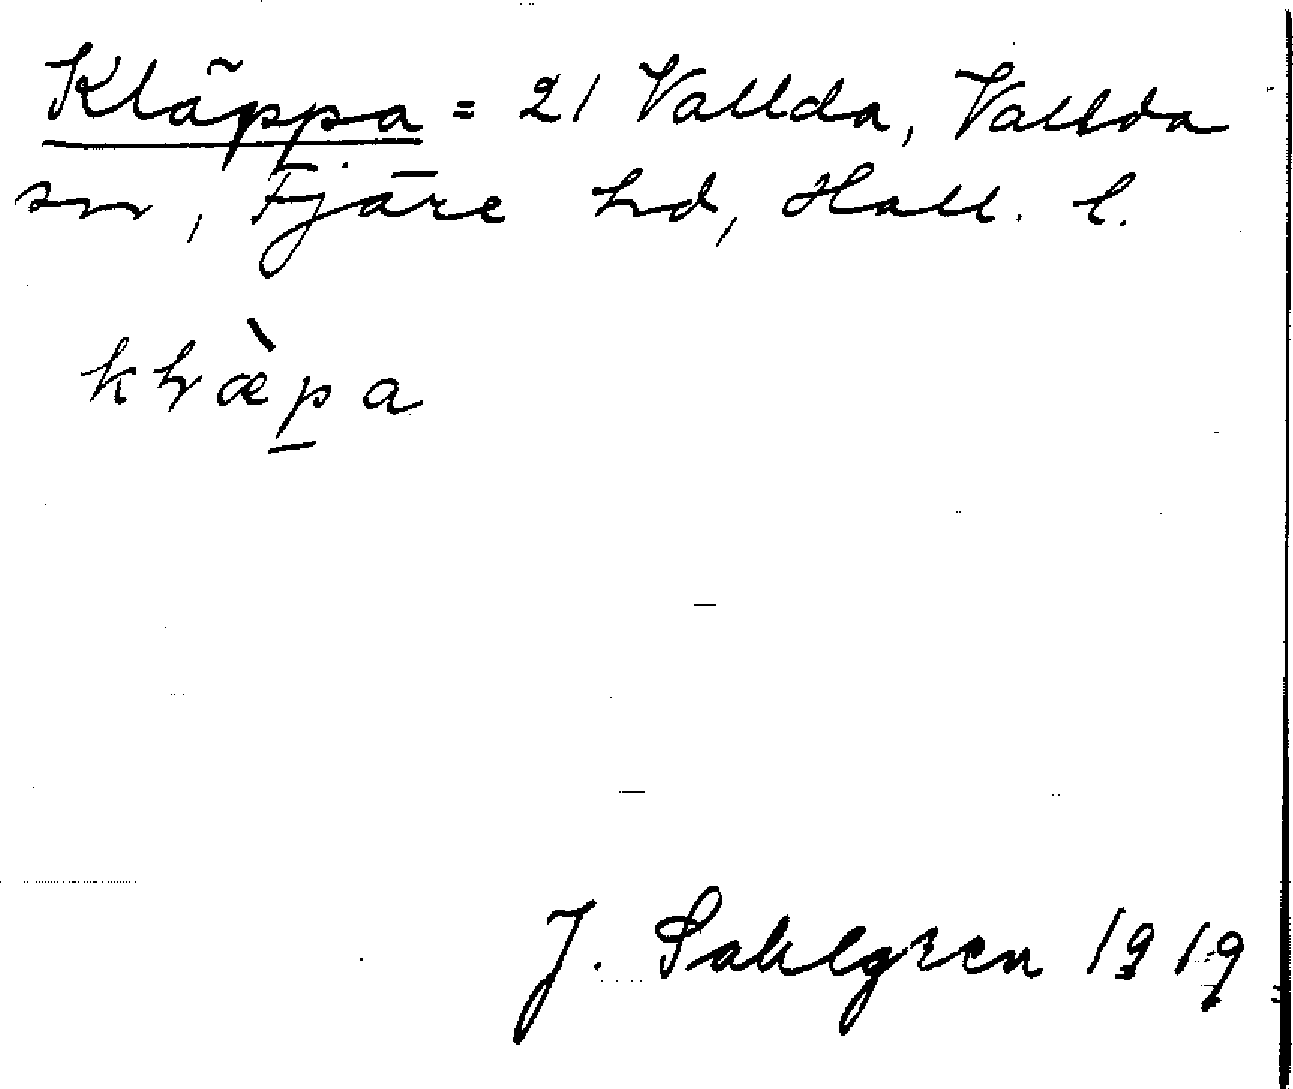 Kläppa = 21 Vallda, Vallda
sn, Fjäre hd, Hall. l.
J. Sahlgren 1919